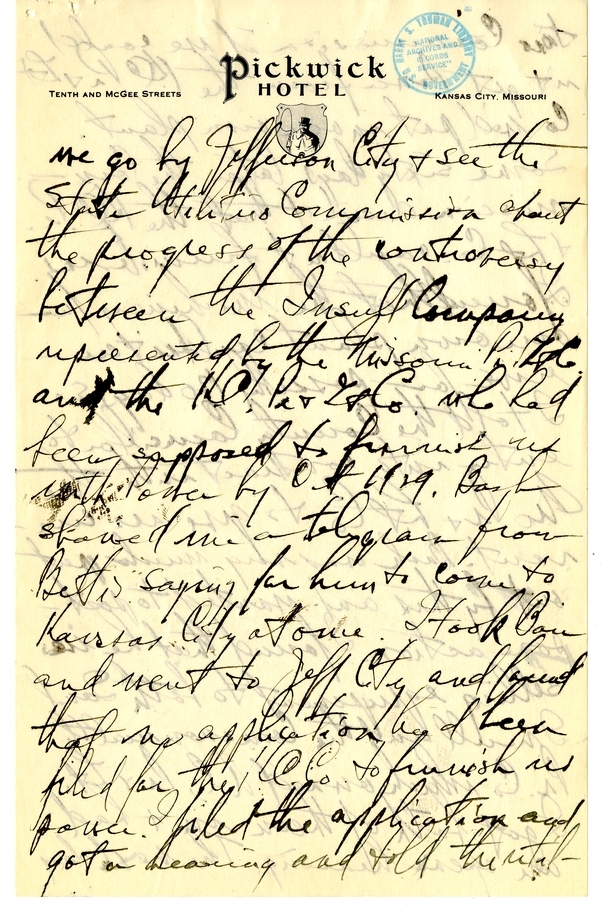 Pickwick
HOTEL
TENTH AND MCGEE STREETS
KANSAS CITY, MISSOURI
HARRY S. TRUMAN LIBRARY
"NATIONAL
ARCHIVES AND
RECORDS
SERVICE"
U.S. GOVERNMENT
we go by Jefferson City & see the
State Utilities Commission about
the progress of the controversy
between the Insull Company
represented by the Missouri P.
and the K.C. P & L Co. who had
been supposed to furnish us
with Power by Oct 1929. Bash
showed me a telegram from
Bettis saying for him to come to
Kansas City at once. I took
and went to Jeff City and found
that no application had been
filed by the K.C. Co. to furnish us
power. I filed the application and
got a hearing and told the util-